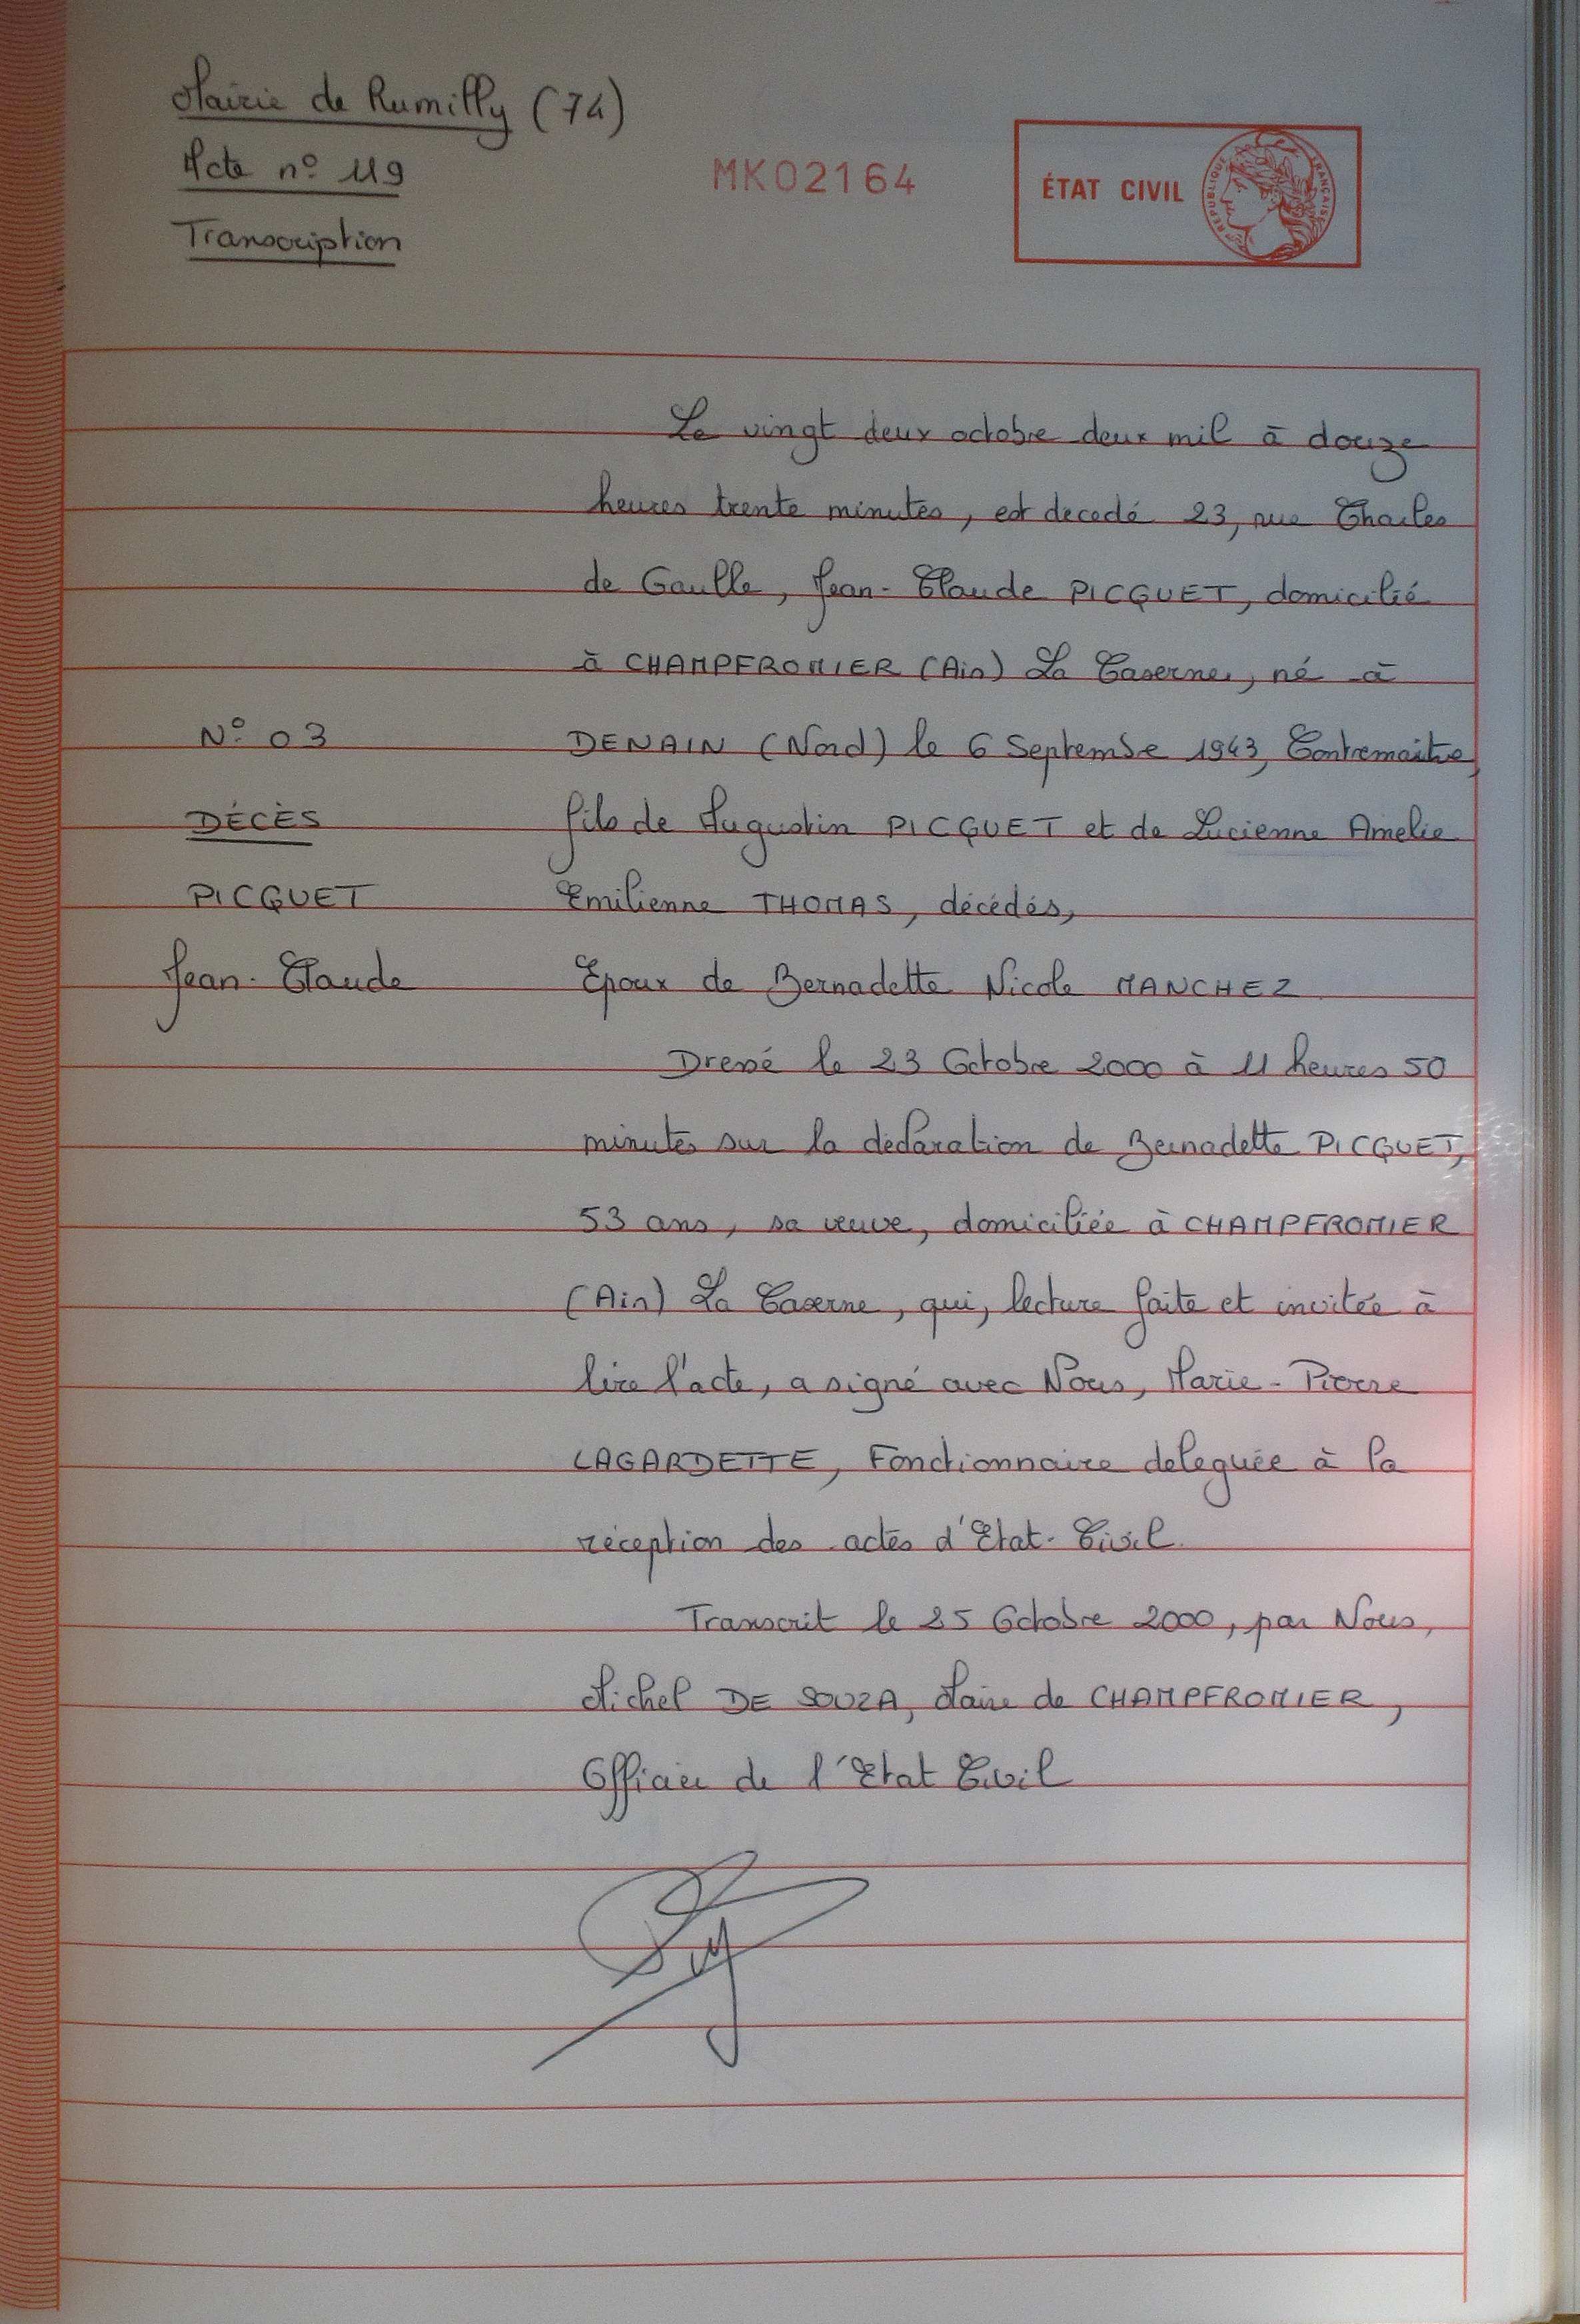 Mairie de Rumilly (74)
Acte n° 119
Transcription
MK02164
ÉTAT CIVIL
RÉPUBLIQUE FRANÇAISE
Le vingt deux octobre deux mil à douze
heures trente minutes, est decedé 23, rue Charles
de Gaulle, Jean-Claude PICQUET, domicilié
à CHAMPFROMIER (Ain) La Caserne, né à
N° 03
DENAIN (Nord) le 6 Septembre 1943, Contremaitre,
DÉCÈS
fils de Augustin PICQUET et de Lucienne Amelie
PICQUET
Emilienne THOMAS, décédés,
Jean-Claude
Epoux de Bernadette Nicole MANCHEZ
Dressé le 23 Octobre 2000 à 11 heures 50
minutes sur la déclaration de Bernadette PICQUET,
53 ans, sa veuve, domiciliée à CHAMPFROMIER
(Ain) La Caserne, qui, lecture faite et invitée à
lire l'acte, a signé avec Nous, Marie-Pierre
LAGARDETTE, Fonctionnaire deleguée à la
réception des actes d'Etat-Civil.
Transcrit le 25 Octobre 2000, par Nous,
Michel DE SOUZA, Maire de CHAMPFROMIER,
Officier de l'Etat Civil